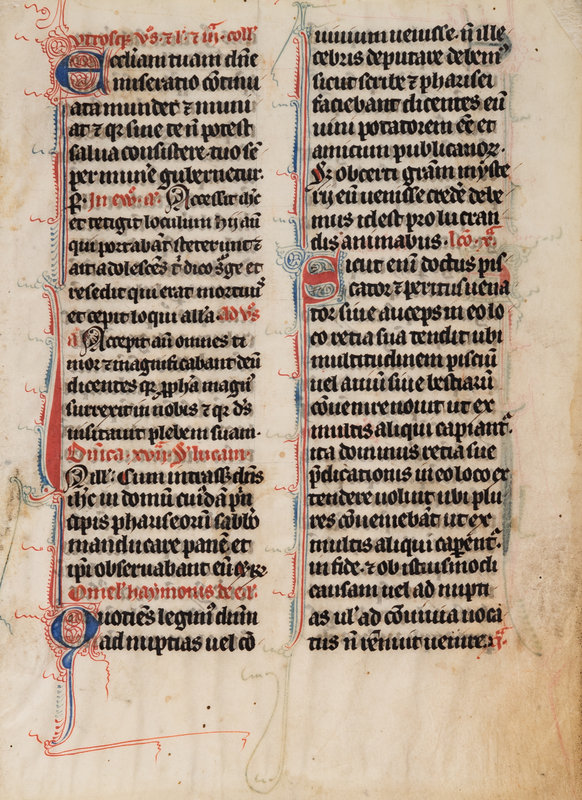 Eccl'iam tuam dn̄e
miseratio cōtinu
ata mundet ⁊ muni
at ⁊ qr sine te n̄ potest
salua consistere. tuo sē
per mun̄e gubernetur.
Accessit ih̄c
et tetigit loculum hij aū
qui portabāt steterunt ⁊
ait adolescēs t̄ dico s̄ge et
resedit qui erat mortuꝰ
et cepit loqui all'a ad vs̄
Accepit aū omnes ti
mor ⁊ magnificabant deū
dicentes qr ꝓpha magnꝰ
surrexit in nobis ⁊ qr ds̄
uisitauit plebem suam.
Dn̄ica xviii S lucam
Cum intrass; dn̄s
ih̄c in domū cuiꝰdā pͥn
cipis phariseorū sabb̄o
manducare panē et
ip̄i obseruabant eū ⁊ R
Omel' haymonis de ea
Quotiēs legimꝰ dn̄m
ad nuptias uel cō
uiuium uenisse. n̄ ille
cebris deputare debemꝰ
sicut scribe ⁊ pharisei
faciebant dicentes eū
uini potatorem eē et
amicum publicanoꝝ.
S; ob certi gr̄am myste
rij eū uenisse crede debe
mus id est pro lucran
dis animabus. lcō. x̄.
Sicut eni doctus pis
cator ⁊ peritus uena
tor siue auceps in eo lo
co retia sua tendit ubi
multitudinem pisciū
uel auiū siue bestiarū
cōuenire nouit ut ex
multis aliqui capiantͬ.
ita dominus retia sue
p̄dicationis in eo loco ex
tendere uoluit ubi plu
res cōueniebāt ut ex
multis aliqui capentͬ.
in fide. ⁊ ob istiusmodi
causam uel ad nupti
as ul' ad cōuiuia uoca
tus n̄ renuit uenire.